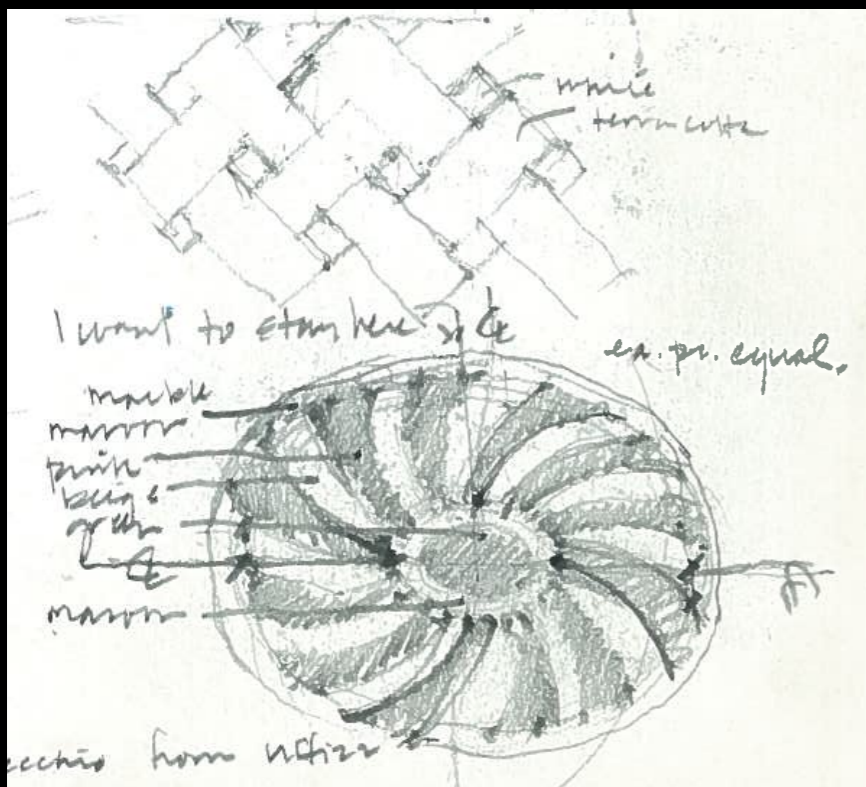 white
terra cotta
I want to stay here
ea. pr. equal.
marble
maroon
pink
beige
green
maroon
from Uffizi